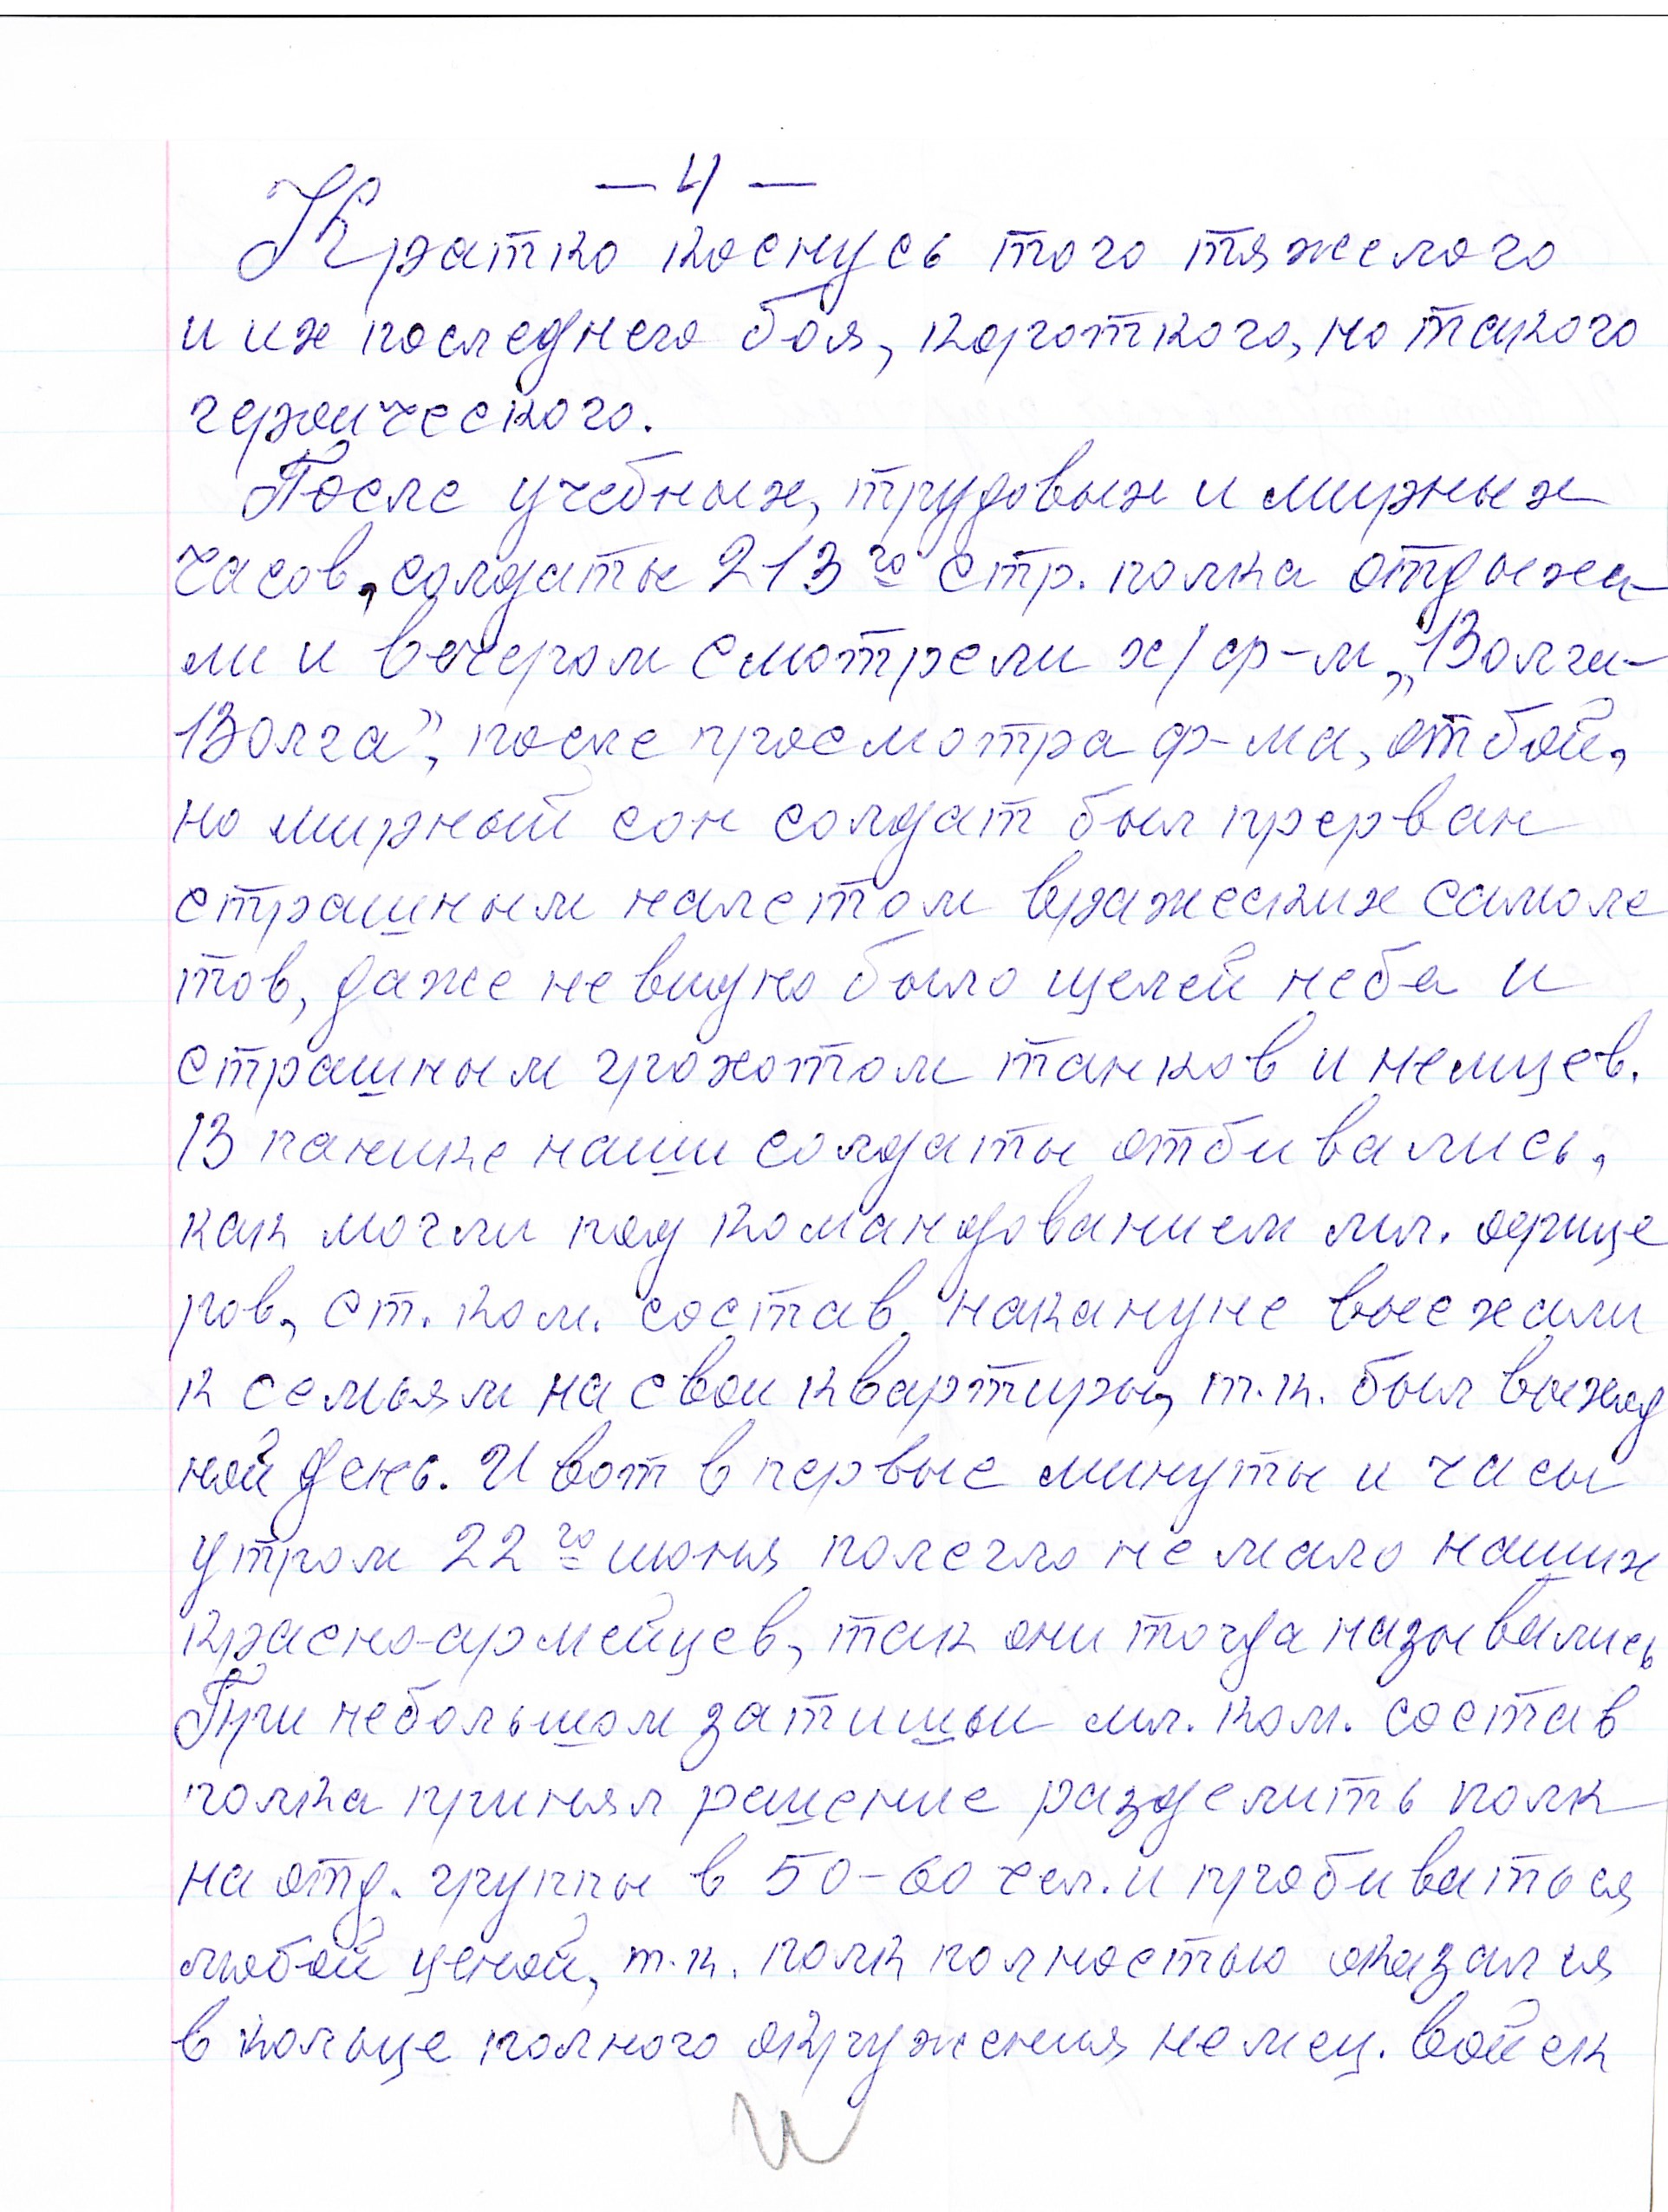 — 4 —
Кратко коснусь того тяжелого
и их последнего боя, короткого, но такого
героического.
После учебных, трудовых и мирных
часов, солдаты 213го стр. полка отдыха-
ли и вечером смотрели х/ф-м „Волга-
Волга”, после просмотра ф-ма, отбой,
но мирный сон солдат был прерван
страшным налетом вражеских самоле
тов, даже не видно было щелей неба и
страшным грохотом танков и немцев.
В панике наши солдаты отбивались,
как могли под командованием мл. офице
ров, ст. ком. состав накануне выехали
к семьям на свои квартиры, т.к. был выход
ной день. И вот в первые минуты и часы
утром 22го июня полегло не мало наших
красно-армейцев, так они тогда назывались
При небольшом затишьи мл. ком. состав
полка принял решение разделить полк
на отд. группы в 50-60 чел. и пробиваться
любой ценой, т.к. полк полностью оказался
в кольце полного окружения немец. войск
И